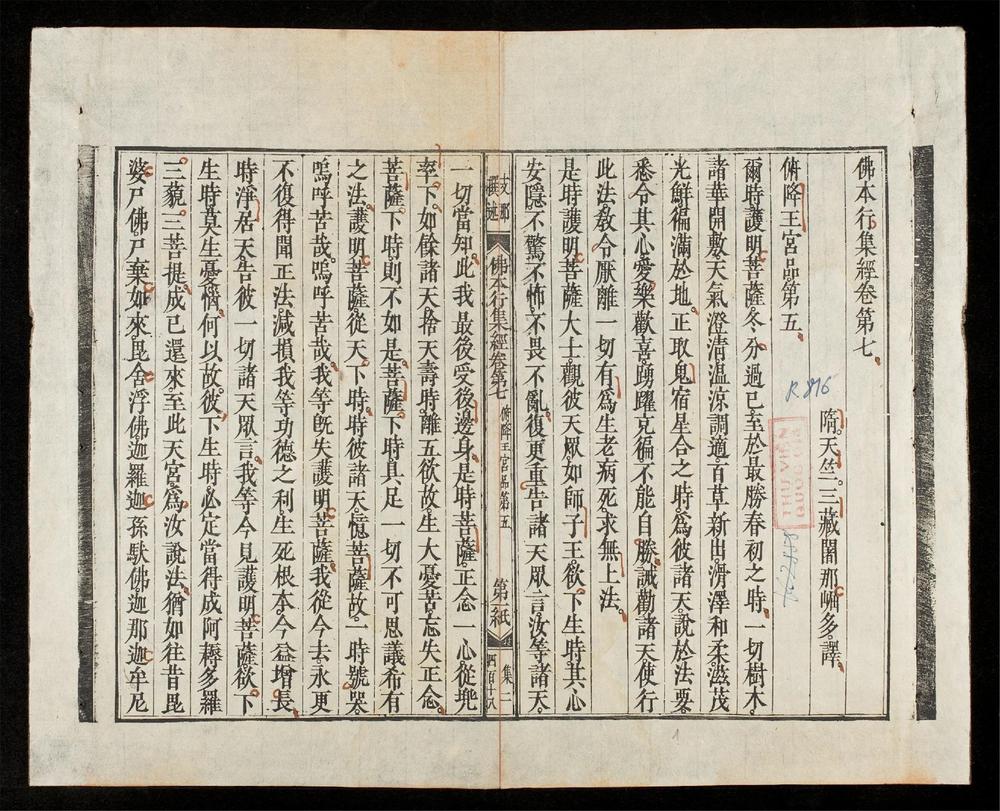 佛本行集經卷第七
隋天竺三藏闍那崛多譯
俯降王宮品第五
爾時護明菩薩冬分過已至於最勝春初之時一切樹木
諸華開敷天氣澄清溫涼調適百草新出滑澤和柔滋茂
光鮮徧滿於地正取鬼宿星合之時爲彼諸天說於法要
悉令其心愛樂歡喜踴躍充徧不能自勝誡勸諸天使行
此法教令厭離一切有爲生老病死求無上法
是時護明菩薩大士觀彼天眾如師子王欲下生時其心
安隱不驚不怖不畏不亂復更重告諸天眾言汝等諸天
支那
撰述
佛本行集經卷第七
俯降王宮品第五
第一紙
集二
四百十八
一切當知此我最後受後邊身是時菩薩正念一心從兜
率下如餘諸天捨天壽時離五欲故生大憂苦忘失正念
菩薩下時則不如是菩薩下時具足一切不可思議希有
之法護明菩薩從天下時時彼諸天憶菩薩故一時號哭
嗚呼苦哉嗚呼苦哉我等旣失護明菩薩我從今去永更
不復得聞正法減損我等功德之利生死根本今益增長
時淨居天告彼一切諸天眾言我等今見護明菩薩欲下
生時莫生憂惱何以故彼下生時必定當得成阿耨多羅
三藐三菩提成已還來至此天宮爲汝說法猶如往昔毘
婆尸佛尸棄如來毘舍浮佛迦羅迦孫馱佛迦那迦牟尼
R 876
1